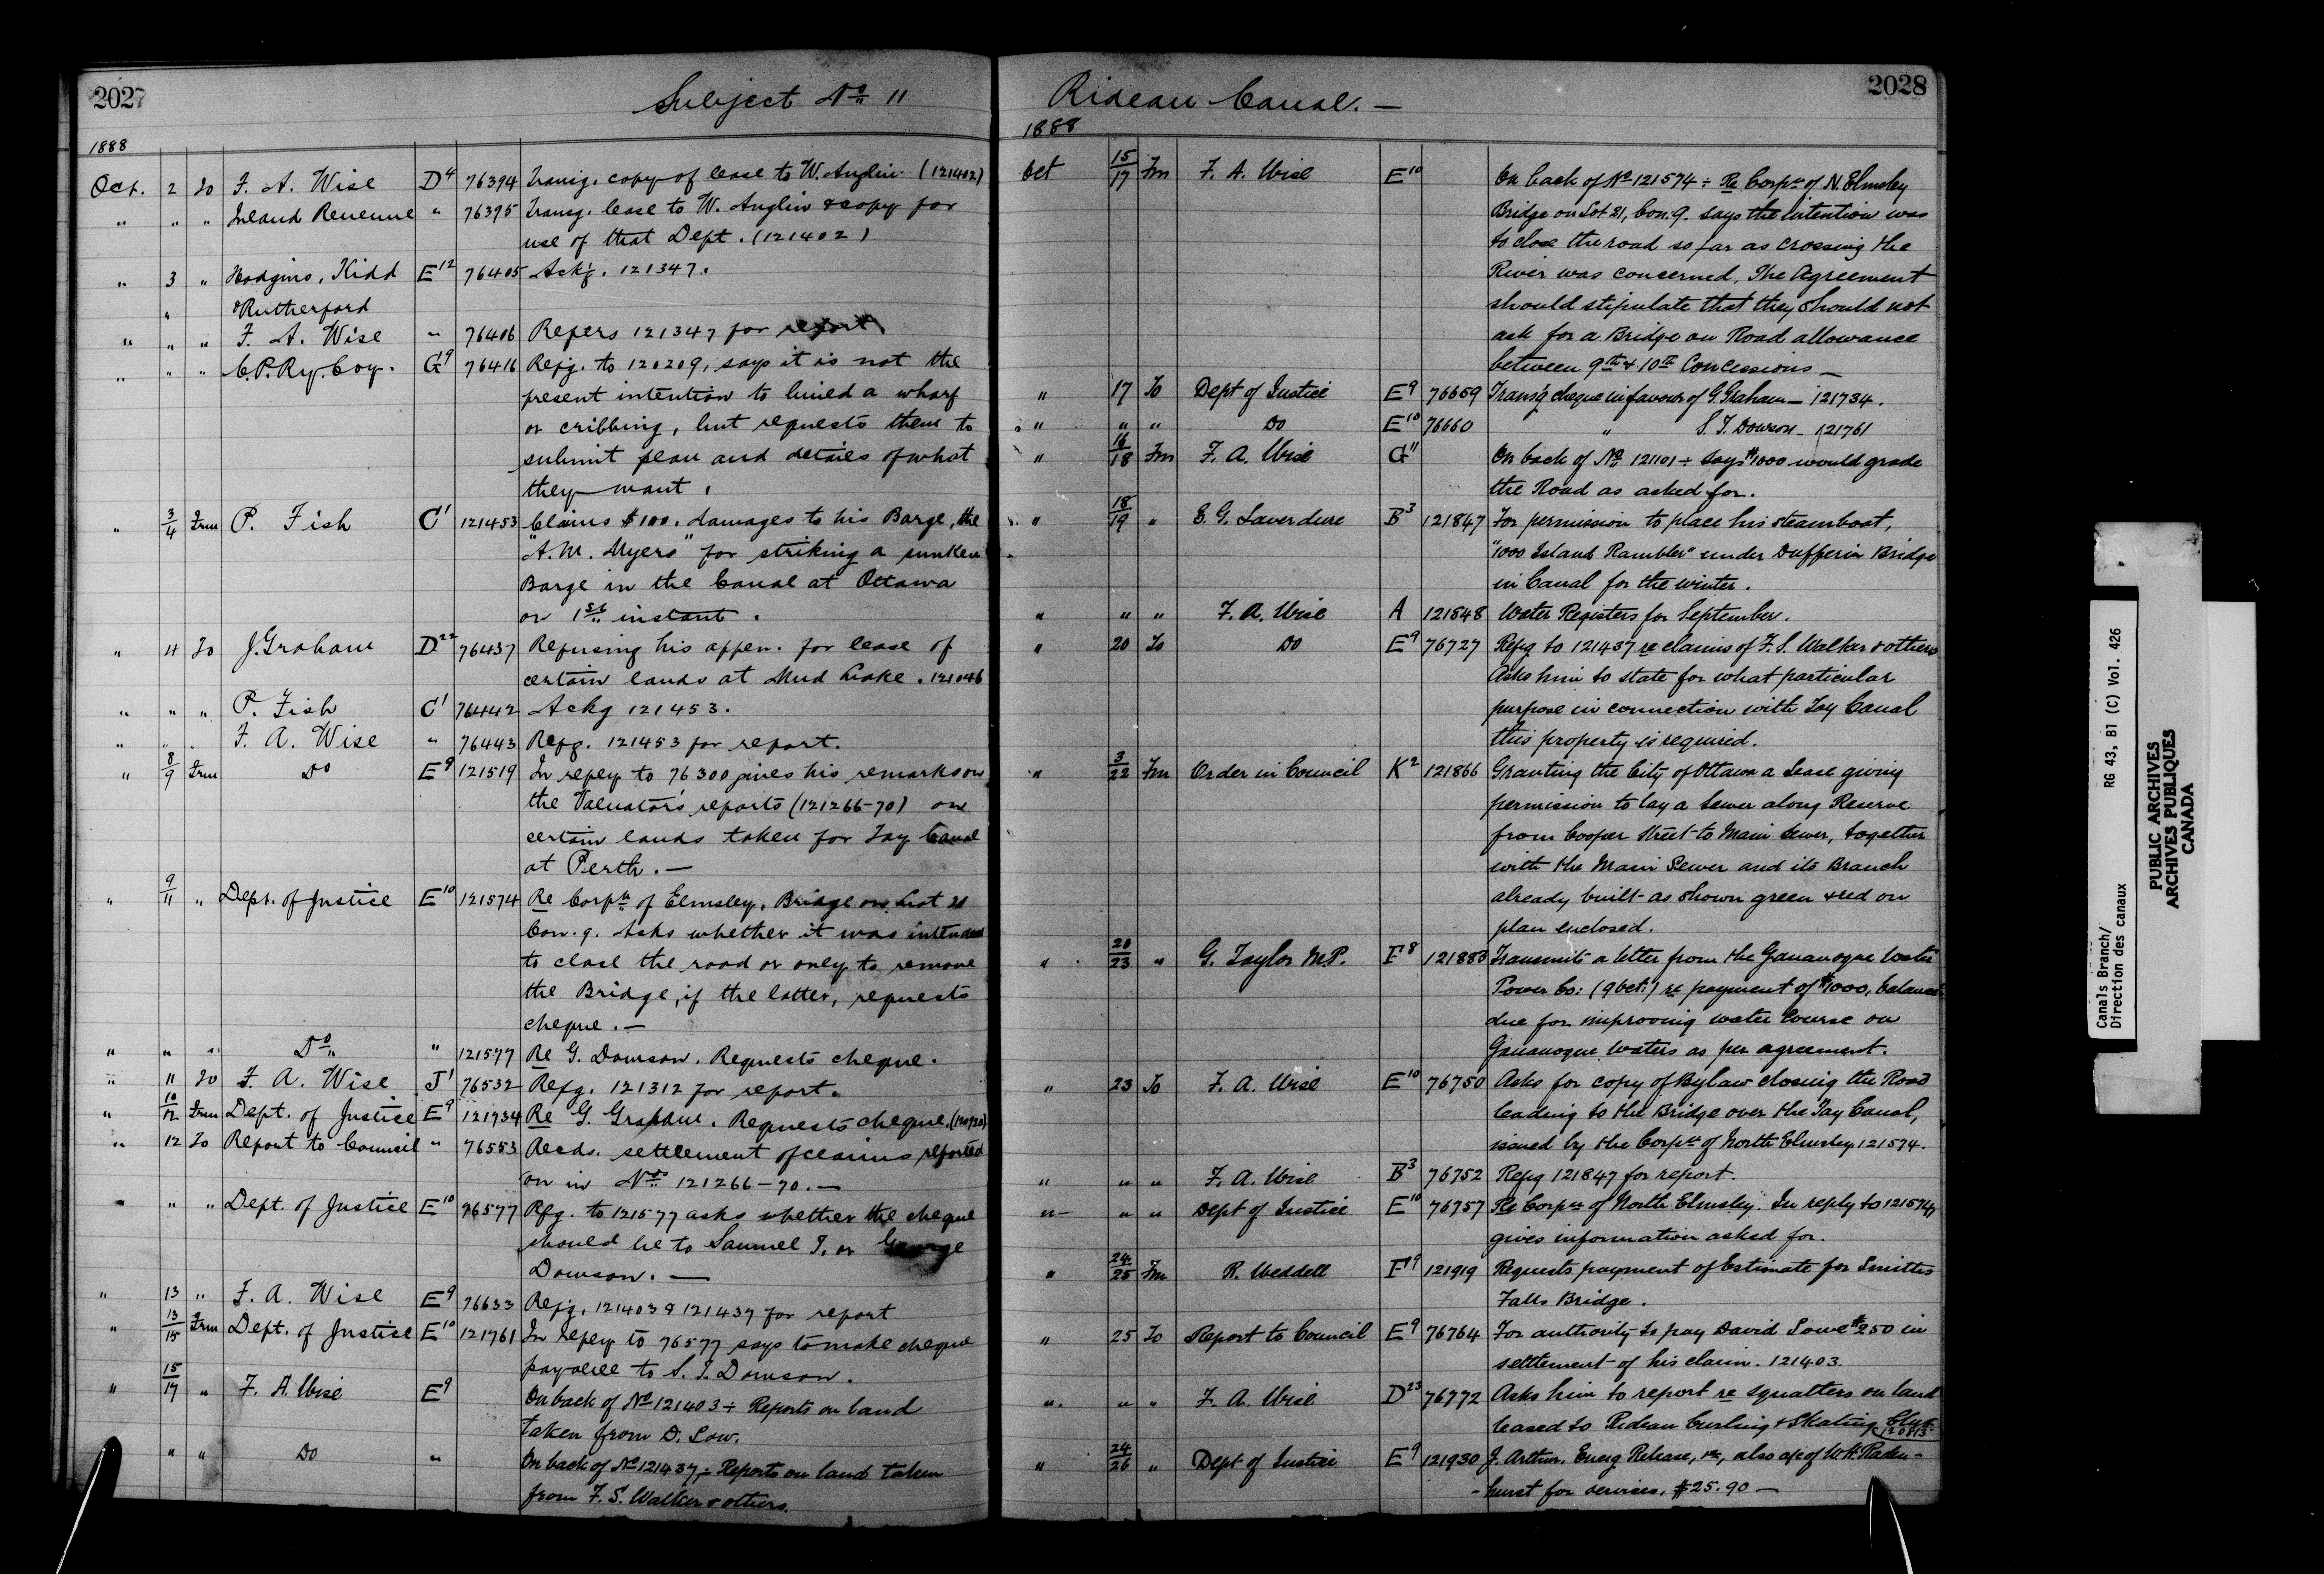 2027
Subject No 11
1888
Oct. 2 To F. A. Wise D4 76394 Transg. copy of lease to W. Anglin. (121402)
" " " Inland Revenue " 76395 Transg. lease to W. Anglin & copy for
use of that Dept. (121402)
" 3 " Hodgins, Kidd E12 76405 Ackg. 121347.
" & Rutherford
" " " F. A. Wise " 76406 Refers 121347 for report
" " " C.P.Ry.Coy. G9 76416 Refg. to 120209, says it is not the
present intention to build a wharf
or cribbing, but requests them to
submit plan and details of what
they want.
" 3/4 Frm P. Fish C1 121453 Claims $100. damages to his Barge, the
"A.M. Myers" for striking a sunken
Barge in the Canal at Ottawa
on 1st instant.
" 4 To J. Graham D22 76437 Refusing his appcn. for lease of
certain lands at Mud Lake. 121046
" " " P. Fish C1 76442 Ackg 121453.
" " " F. A. Wise " 76443 Refg. 121453 for report.
" 8/9 Frm Do E9 121519 In reply to 76300 gives his remarks on
the Valuator's reports (121266-70) on
certain lands taken for Tay Canal
at Perth. —
" 9/11 " Dept. of Justice E10 121574 Re Corptn of Elmsley. Bridge on Lot 21
Con. 9. Asks whether it was intended
to close the road or only to remove
the Bridge, if the latter, requests
cheque. —
" " " Do " 121577 Re G. Dowson. Requests cheque.
" 11 To F. A. Wise J1 76532 Refg. 121312 for report.
" 10/12 Frm Dept. of Justice E9 121734 Re G. Graham. Requests cheque.
" 12 To Report to Council " 76553 Recds. settlement of claims reported
on in Nos 121266-70. —
" " " Dept. of Justice E10 76577 Rfg. to 121577 asks whether the cheque
should be to Samuel T. or George
Dowson. —
" 13 " F. A. Wise E9 76633 Refg. 121403 & 121437 for report
" 13/15 Frm Dept. of Justice E10 121761 In reply to 76577 says to make cheque
payable to S. T. Dowson.
" 15/17 " F. A. Wise E9 On back of No 121403 ÷ Reports on land
taken from D. Low.
" " Do " On back of No 121437 ÷ Reports on land taken
from F. S. Walker & others.
2028
Rideau Canal. —
1888
Oct 15/17 Fm F. A. Wise E10 On back of No 121574 ÷ Re Corptn of N. Elmsley
Bridge on Lot 21, Con. 9. says the intention was
to close the road so far as crossing the
River was concerned, The Agreement
should stipulate that they should not
ask for a Bridge on Road allowance
between 9th & 10th Concessions —
" 17 To Dept of Justice E9 76659 Transg cheque in favour of G. Graham — 121734.
" " " Do E10 76660 " S. T. Dowson - 121761
" 16/18 Fm F. A. Wise G11 On back of No 121101 ÷ says $1000 would grade
the Road as asked for.
" 18/19 " E. G. Laverdure B3 121847 For permission to place his steamboat,
"1000 Island Rambler" under Dufferin Bridge
in Canal for the winter.
" " " F. A. Wise A 121848 Water Registers for September.
" 20 To Do E9 76727 Refg to 121437 re claims of F. S. Walker & others
Asks him to state for what particular
purpose in connection with Tay Canal
this property is required.
" 3/22 Fm Order in Council K2 121866 Granting the City of Ottawa a Lease giving
permission to lay a Sewer along Reserve
from Cooper Street to Main Sewer, together
with the Main Sewer and its Branch
already built - as shown green & red on
plan enclosed.
" 20/23 " G. Taylor M.P. F8 121883 Transmits a letter from the Gananoque Water
Power Co: (9 Oct:) re payment of $1000, balance
due for improving water course on
Gananoque waters as per agreement.
" 23 To F. A. Wise E10 76750 Asks for copy of Bylaw closing the Road
leading to the Bridge over the Tay Canal,
issued by the Corptn of North Elmsley 121574.
" " " F. A. Wise B3 76752 Refg 121847 for report.
" " " Dept of Justice E10 76757 Re Corptn of North Elmsley. In reply to 121574,
gives information asked for.
" 24/25 Fm R. Weddell F19 121919 Requests payment of Estimate for Smiths
Falls Bridge.
" 25 To Report to Council E9 76764 For authority to pay David Lowe $250 in
settlement of his claim. 121403.
" " " F. A. Wise D23 76772 Asks him to report re squatters on land
leased to Rideau Curling & Skating Club
120813
" 24/26 " Dept of Justice E9 121930 J. Arthur. Encg Release, &c, also a/c of W. H. Raden-
-hurst for services, $25.90 —
Canals Branch/
Direction des canaux
RG 43, B1 (C) Vol. 426
PUBLIC ARCHIVES
ARCHIVES PUBLIQUES
CANADA